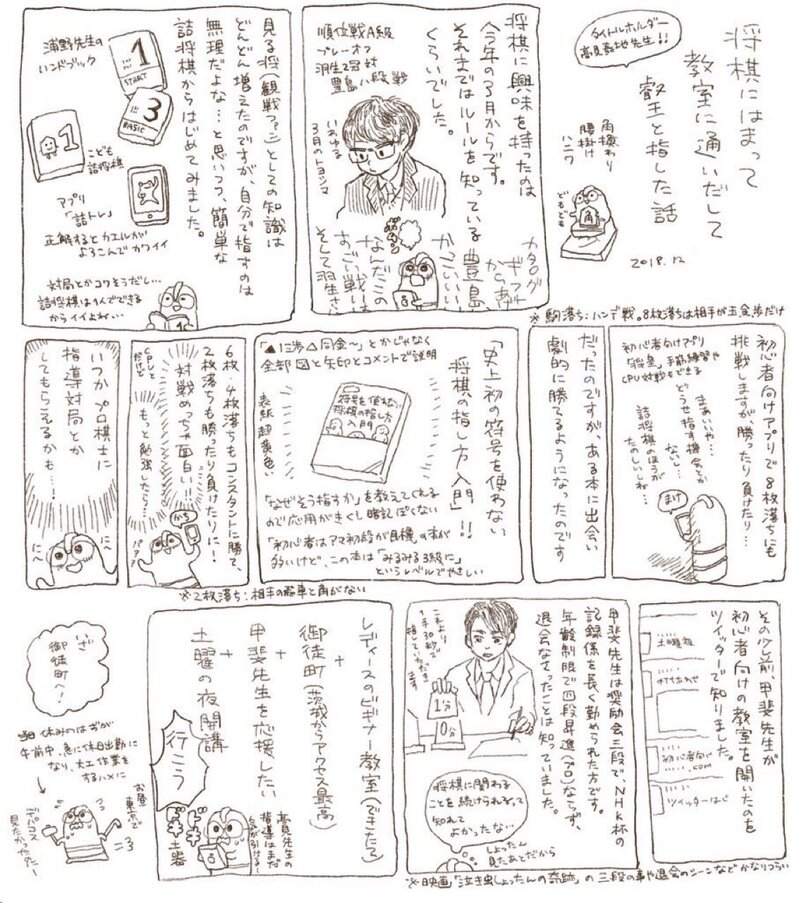 将棋にはまって
教室に通いだして
叡王と指した話
タイトルホルダー
高見泰地先生!!
角換わり
腰掛け
ハニワ
どもども
2018.12
将棋に興味を持ったのは
今年の3月からです。
それまではルールを知っている
くらいでした。
順位戦A級
プレーオフ
羽生2冠対
豊島八段戦
いわゆる
3月のトヨシマ
カタログ
ギフト
からあ
豊島
かっこいい
なんだこの
すごい戦いは
そして羽生さ
見る将(観戦ファン)としての知識は
どんどん増えたのですが、自分で指すのは
無理だよな…と思いつつ、簡単な
詰将棋からはじめてみました。
浦野先生の
ハンドブック
1
START
3
BASIC
1
こども
詰将棋
アプリ
「詰トレ」
正解するとカエルが
よろこんでカワイイ
対局とかコワそうだし…
詰将棋は1人でできる
からイイよね…
※駒落ち:ハンデ戦。8枚落ちは相手が玉金歩だけ
初心者向けアプリで8枚落ちにも
挑戦しますが、勝ったり負けたり…
初心者向けアプリ
手筋練習や
CPU対戦もできる
まあいいや…
どうせ指す機会とか
ないし…
詰将棋のほうが
たのしいしね…
まけ
だったのですが、ある本に出会い
劇的に勝てるようになったのです
「史上初の符号を使わない
将棋の指し方入門」!!
「▲1三歩△同金〜」とかじゃなく
全部図と矢印とコメントで説明
符号を使わない
将棋の指し方
入門
表紙超黄色い
「なぜそう指すか」を教えてくれる
ので応用がきくし暗記ぽくない
「初心者はアマ初段が目標」の本が
多いけど、この本は「みるみる3級に」
というレベルでやさしい
6枚・4枚落ちもコンスタントに勝て、
2枚落ちも勝ったり負けたりに!
対戦めっちゃ面白い!!
CPUと
だけど
もっと勉強したら…
かち
いつかプロ棋士に
指導対局とか
してもらえるかも…!
に〜
に〜
※2枚落ち:相手の飛車と角がない
その少し前、甲斐先生が
初心者向けの教室を開いたのを
ツイッターで知りました。
土曜夜
初心者向け
.com
甲斐先生は奨励会三段で、NHK杯の
記録係を長く勤められた方です。
年齢制限で四段昇進(プロ)ならず、
退会なさったことは知っていました。
これより
1手30秒で
指していただき
ます
1分
0分
将棋に関わる
ことを続けられるって
知れて
よかったな…
しょったん
見たあとだから
※映画「泣き虫しょったんの奇跡」の三段の事や退会のシーンなどかなりつらい
レディースのビギナー教室(できたて)
+
御徒町(茨城からアクセス最高)
+
甲斐先生を応援したい
+
土曜の夜開講
行こう
ドキ
ドキ
土器
高見先生の
指導はまだ
いざ
御徒町へ!
当日休みのはずが
午前中、急に休日出勤に
なり、大工作業を
するハメに
お昼
東京で
デパコス
見たかったのに〜